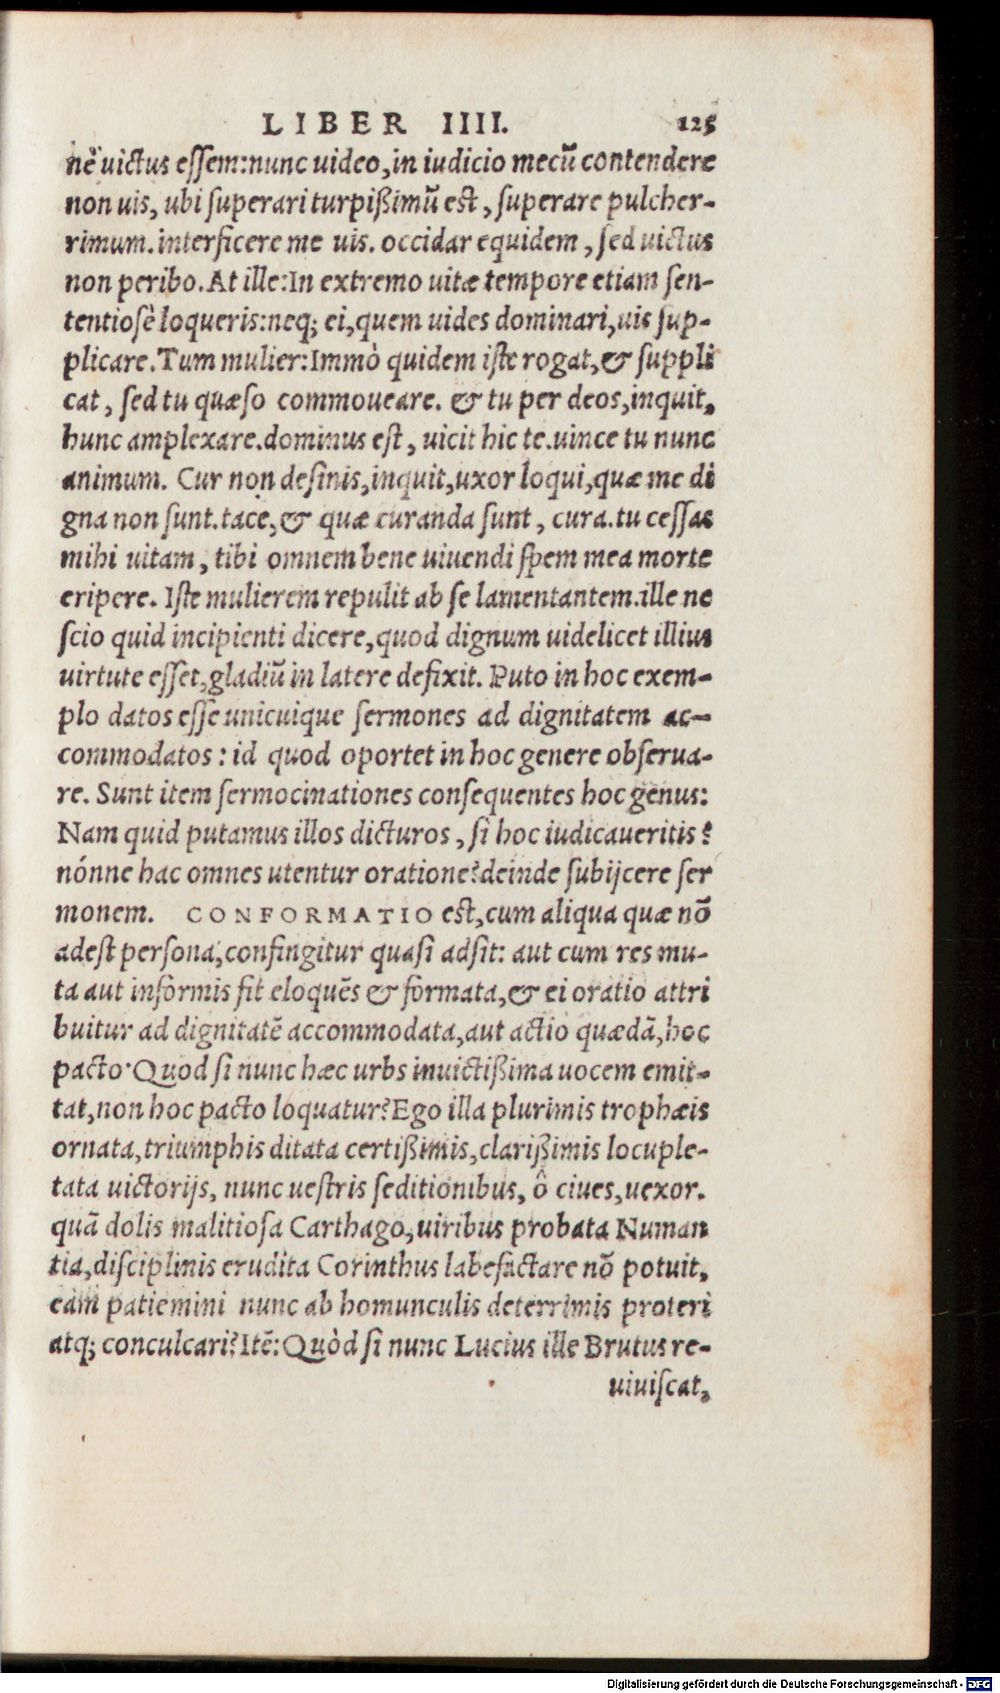 LIBER IIII. 125
nè uictus essem:nunc uideo,in iudicio mecū contendere
non uis, ubi superari turpißimū est, superare pulcher-
rimum. interficere me uis. occidar equidem, sed uictus
non peribo. At ille:In extremo uitæ tempore etiam sen-
tentiosè loqueris:neq; ei,quem uides dominari,uis sup-
plicare.Tum mulier:Immò quidem iste rogat,& suppli
cat, sed tu quæso commoueare. & tu per deos,inquit,
hunc amplexare.dominus est, uicit hic te.uince tu nunc
animum. Cur non desinis,inquit,uxor loqui,quæ me di
gna non sunt.tace,& quæ curanda sunt, cura.tu cessas
mihi uitam, tibi omnem bene uiuendi spem mea morte
eripere. Iste mulierem repulit ab se lamentantem.ille ne
scio quid incipienti dicere,quod dignum uidelicet illius
uirtute esset,gladiū in latere defixit. Puto in hoc exem-
plo datos esse unicuique sermones ad dignitatem ac-
commodatos: id quod oportet in hoc genere obserua-
re. Sunt item sermocinationes consequentes hoc genus:
Nam quid putamus illos dicturos, si hoc iudicaueritis?
nónne hac omnes utentur oratione?deinde subijcere ser
monem. CONFORMATIO est,cum aliqua quæ nō
adest persona,confingitur quasi adsit: aut cum res mu-
ta aut informis fit eloquēs & formata,& ei oratio attri
buitur ad dignitatē accommodata,aut actio quædā,hoc
pacto·Quod si nunc hæc urbs inuictißima uocem emit-
tat,non hoc pacto loquatur?Ego illa plurimis trophæis
ornata,triumphis ditata certißimis,clarißimis locuple-
tata uictorijs, nunc uestris seditionibus, ô ciues,uexor.
quā dolis malitiosa Carthago,uiribus probata Numan
tia,disciplinis erudita Corinthus labefactare nō potuit,
eam patiemini nunc ab homunculis deterrimis proteri
atq; conculcari?Itē: Quòd si nunc Lucius ille Brutus re-
uiuiscat,
Digitalisierung gefördert durch die Deutsche Forschungsgemeinschaft - DFG